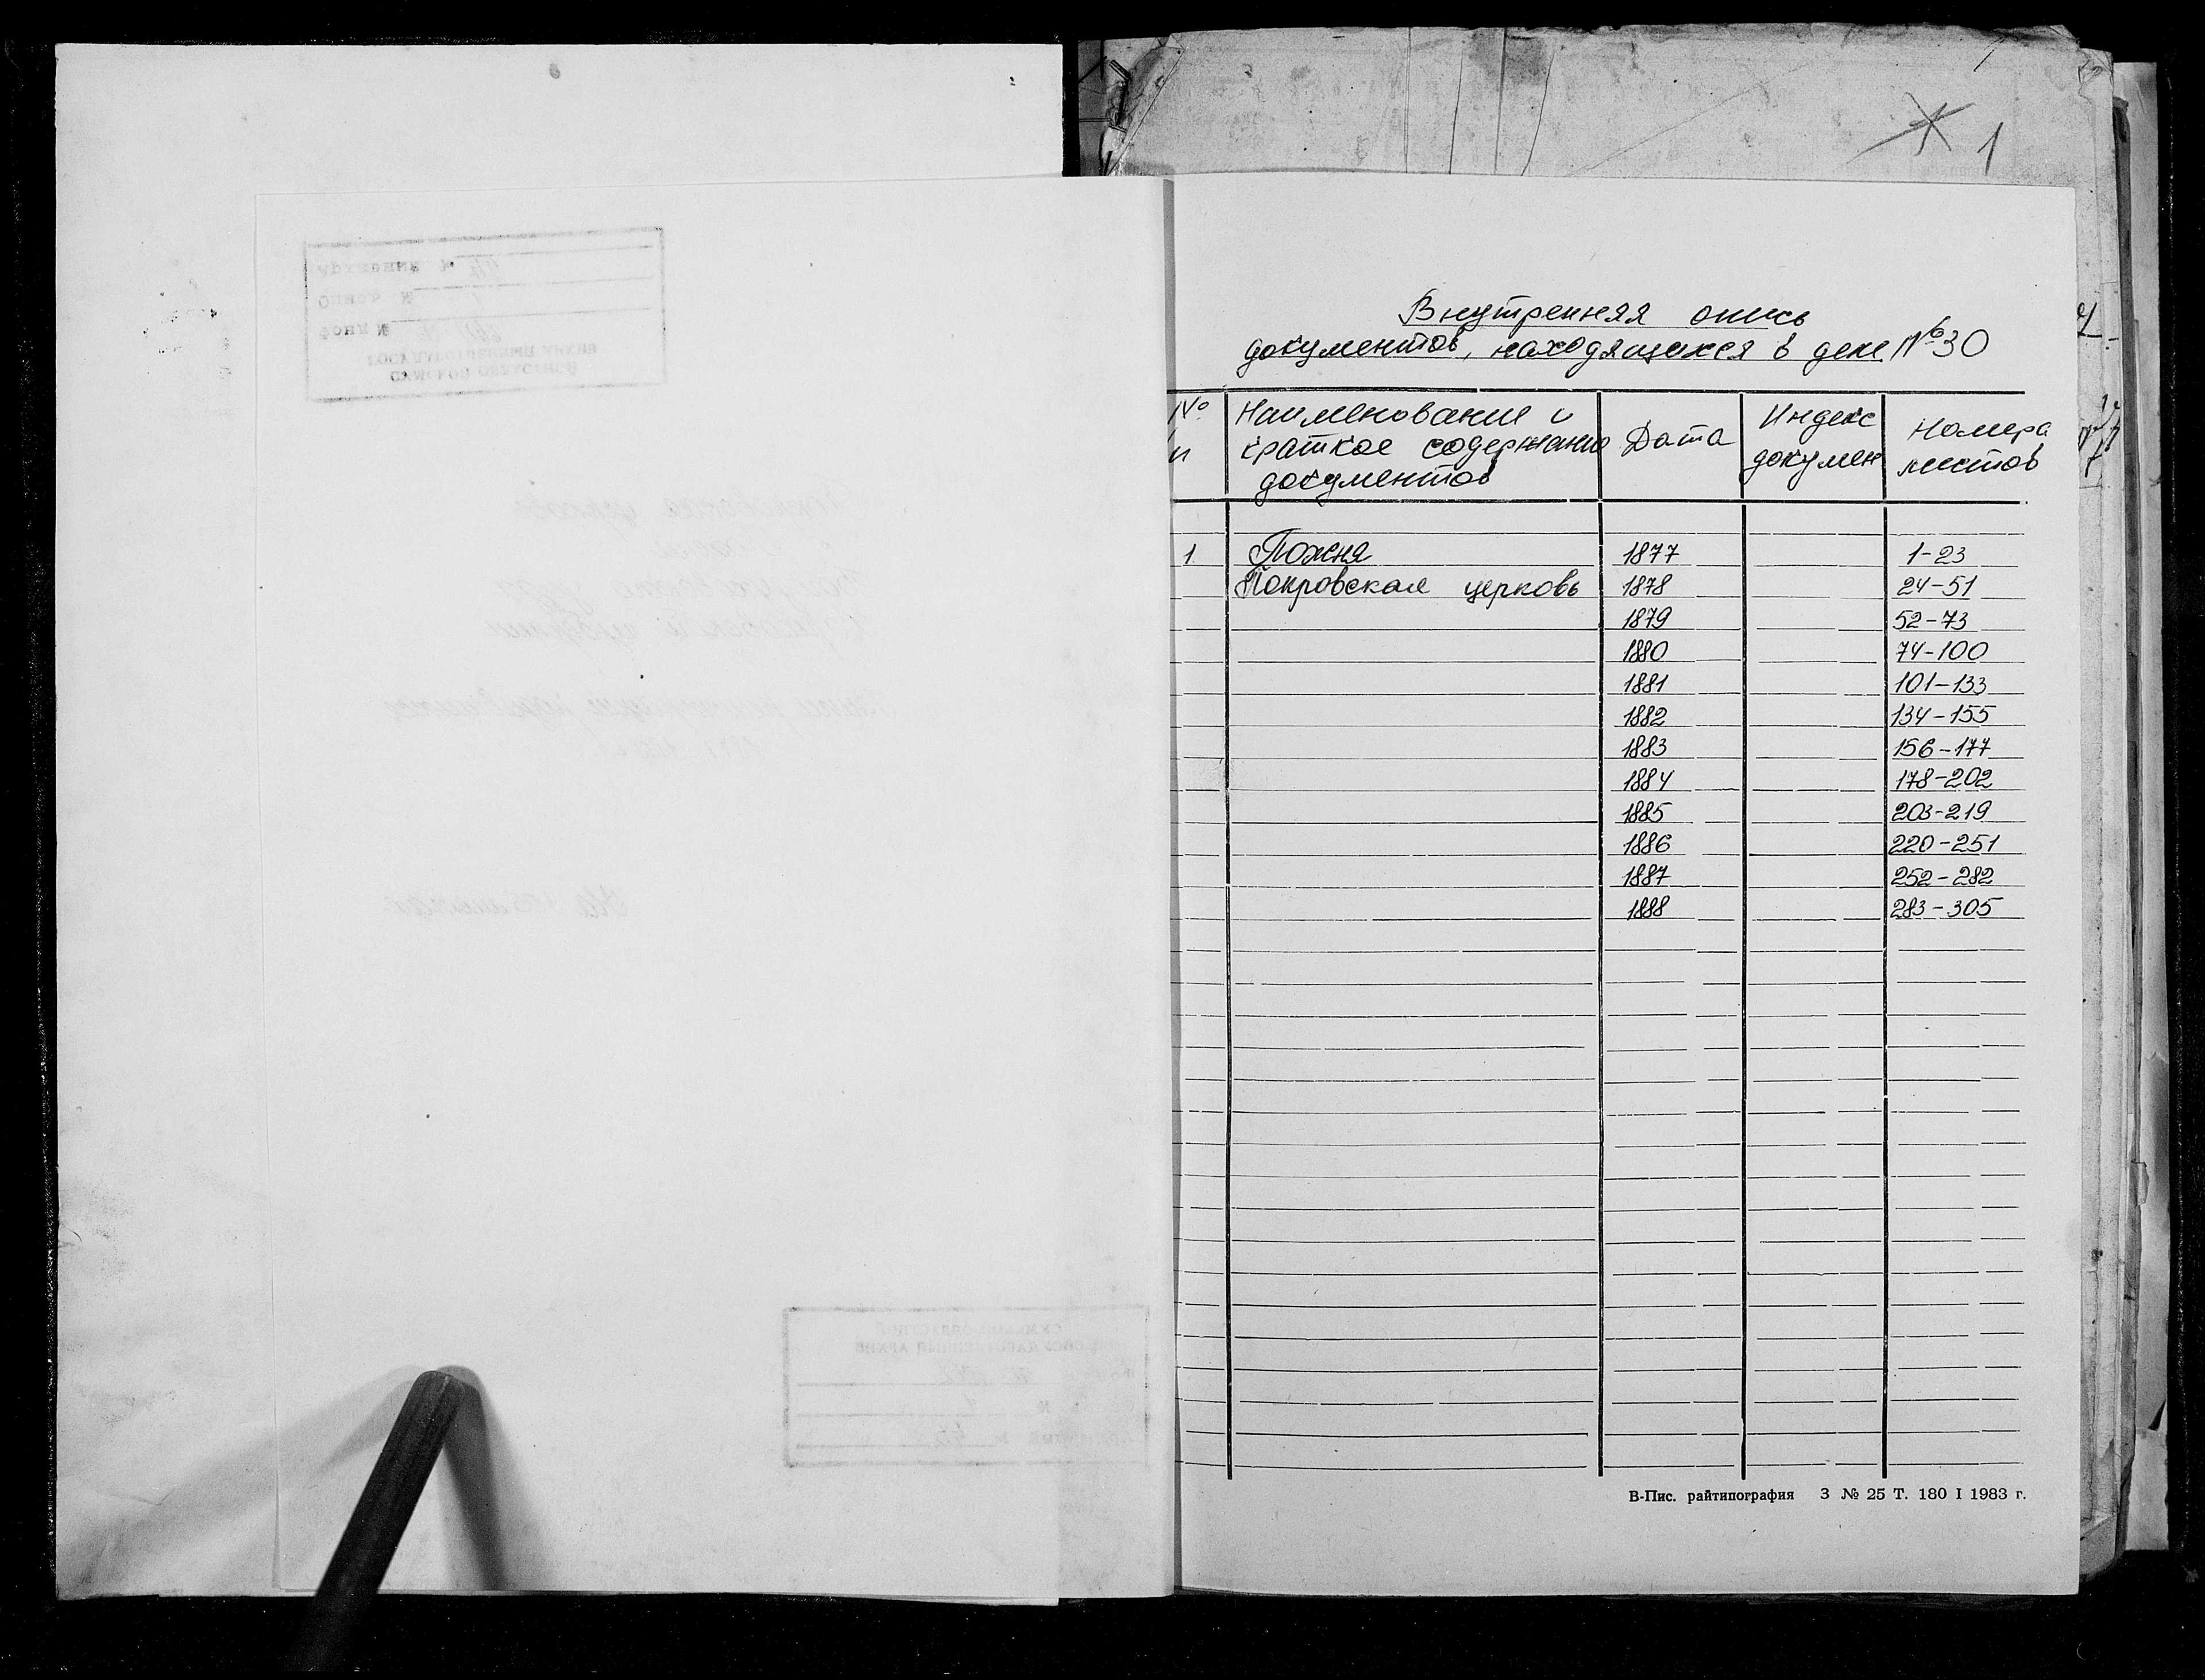 1
Внутренняя опись
документов, находящихся в деле №30
№ Наименование и краткое содержание документов Дата Индекс докумен Номера листов
1 Пожня 1877 1-23
Покровская церковь 1878 24-51
1879 52-73
1880 74-100
1881 101-133
1882 134-155
1883 156-177
1884 178-202
1885 203-219
1886 220-251
1887 252-282
1888 283-305
В-Пис. райтипография З № 25 Т. 180 I 1983 г.